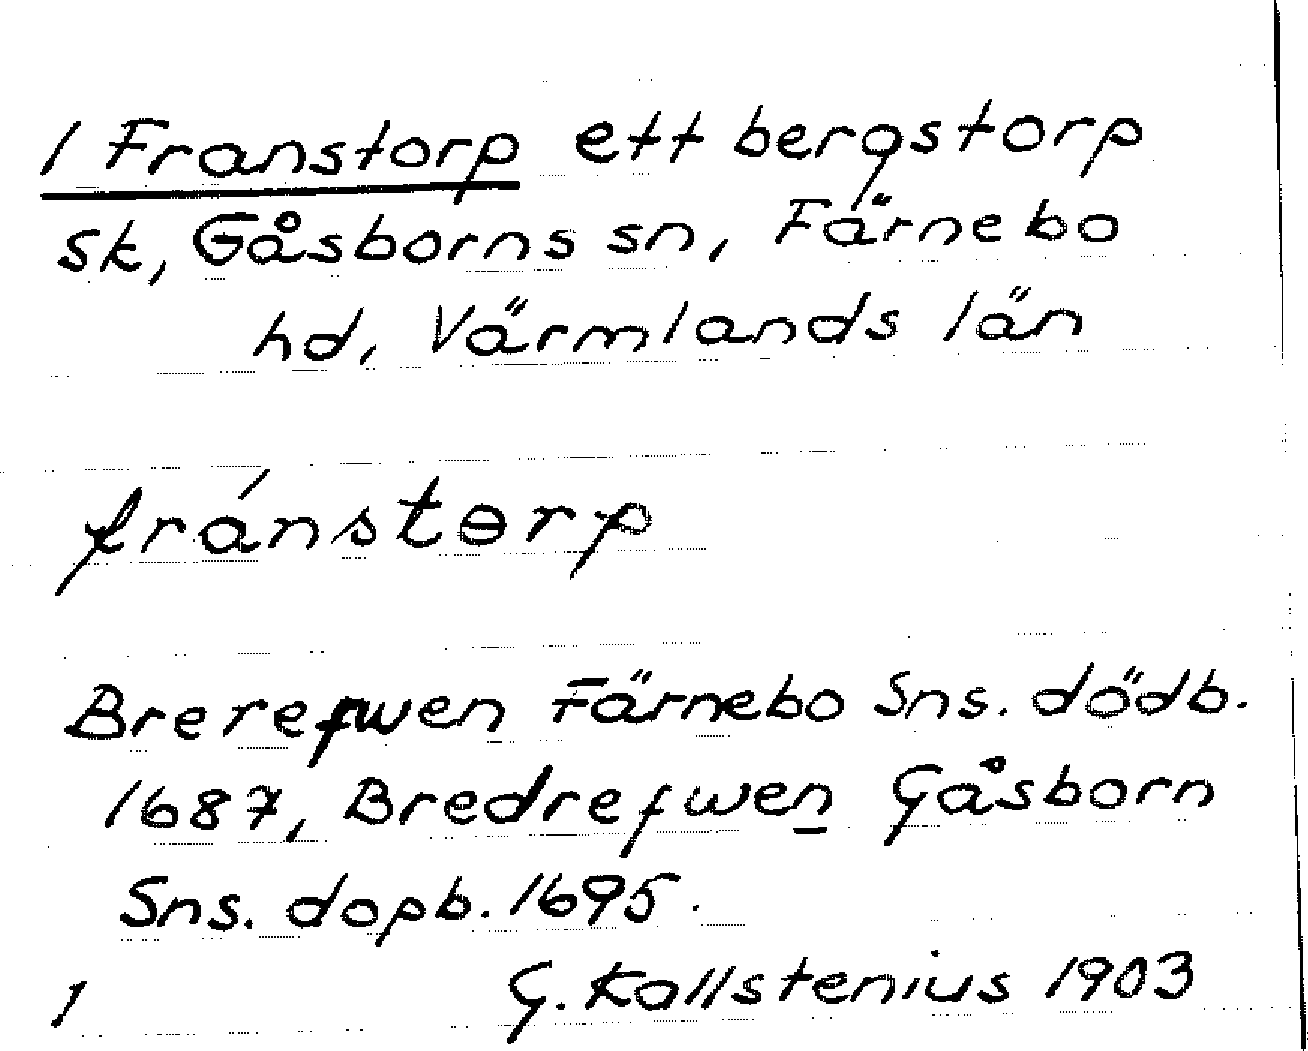 1 Franstorp ett bergstorp
sk, Gåsborns sn, Färnebo
hd, Värmlands län
fránstɵrp
Brerefwen Färnebo Sns. dödb.
1687, Bredrefwen Gåsborn
Sns. dopb. 1695.
1 G. Kallstenius 1903